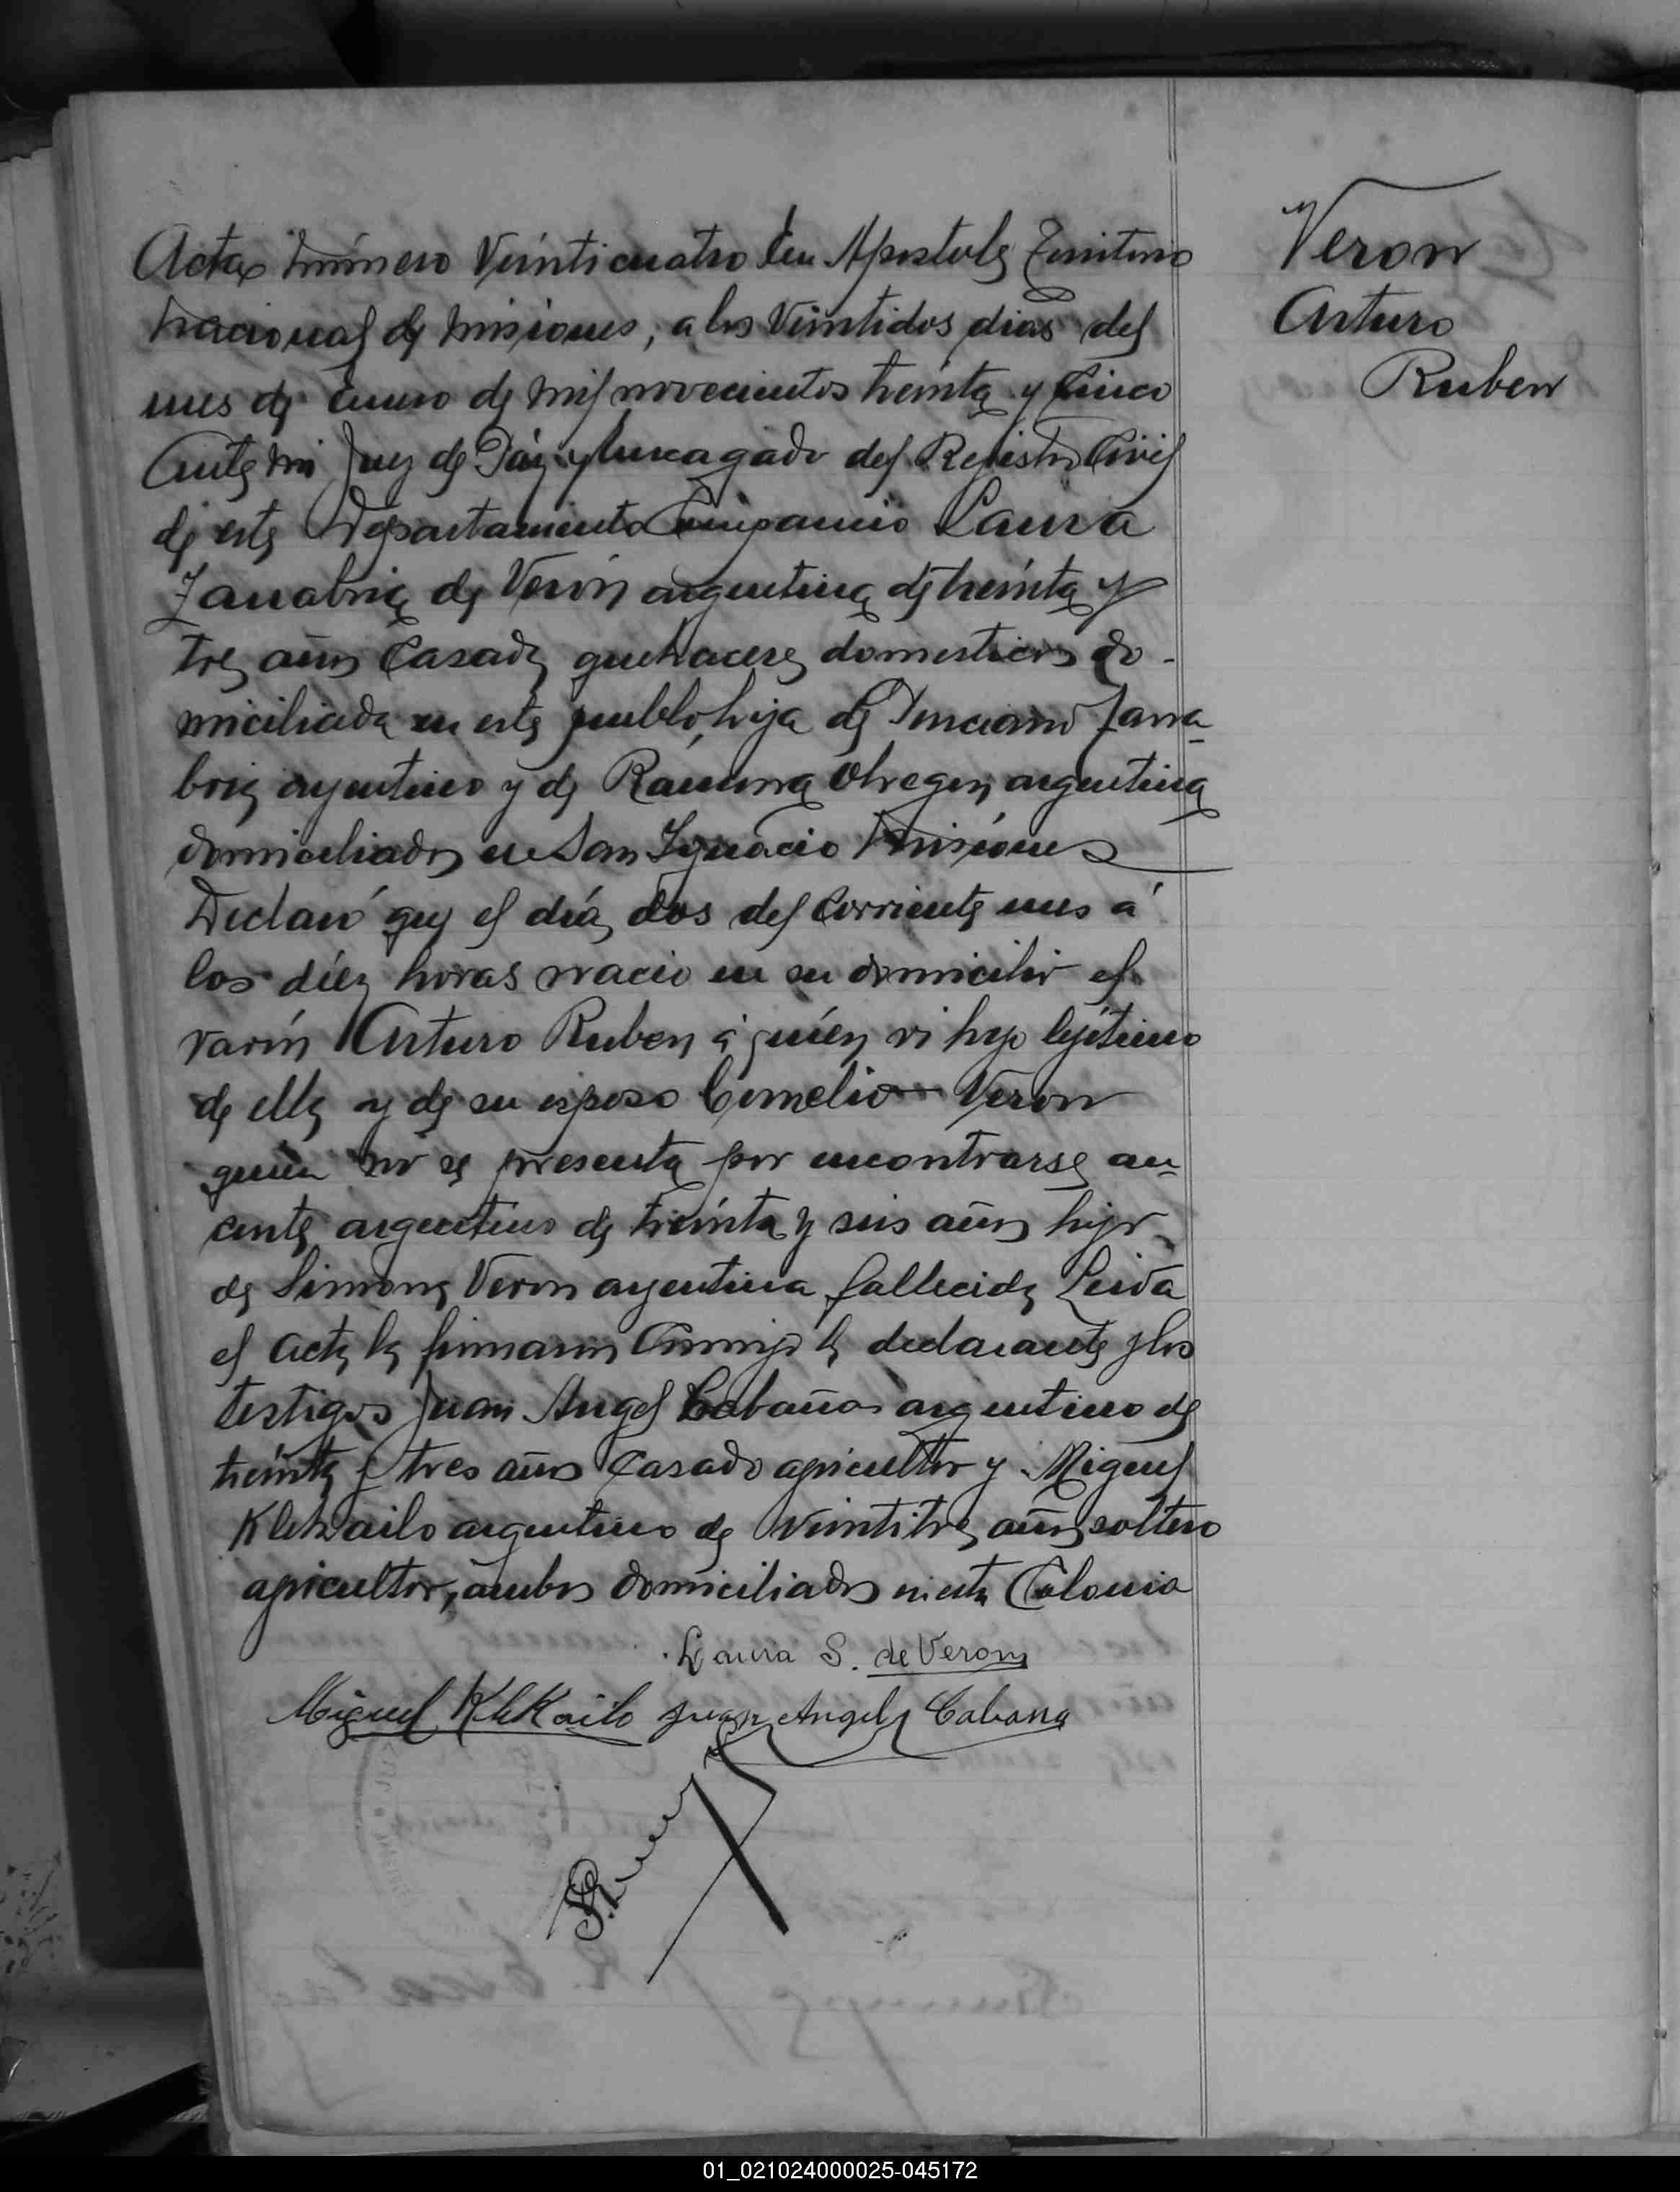 Acta número Veinticuatro En Apostoles Territorio
nacional de misiones, a los Veintidos dias del
mes de Enero de mil novecientos treinta y Cinco
Ante mi Juez de Páz y Encargado del Registro Civil
de este Departamento Compareció Laura
Zanabria de Verón argentina de treinta y
tres años Casada quehaceres domesticos do-
miciliada en este pueblo, hija de Zana-
bria argentino y de Ramona Obregon argentina
domiciliados en San Ignacio Misiones
Declaró que el día dos del corriente mes á
las diéz horas nació en su domicilio el
varón Arturo Ruben á quién vi hijo lejítimo
de ella y de su esposo Cornelio Veron
quien no se presenta por encontrarse au-
cente argentino de treinta y seis años hijo
de Simona Veron argentina fallecida Leida
el acta la firmaron Conmigo la declarante y los
testigos Juan Angel Cabañas argentino de
treinta y tres años Casado agricultor y Miguel
Klekailo argentino de veintitres años soltero
agricultor, ambos domiciliados en esta Colonia
Laura S. de Veron
Miguel Klekailo Juan Angel Cabana
Veron
Arturo
Ruben
01_021024000025-045172